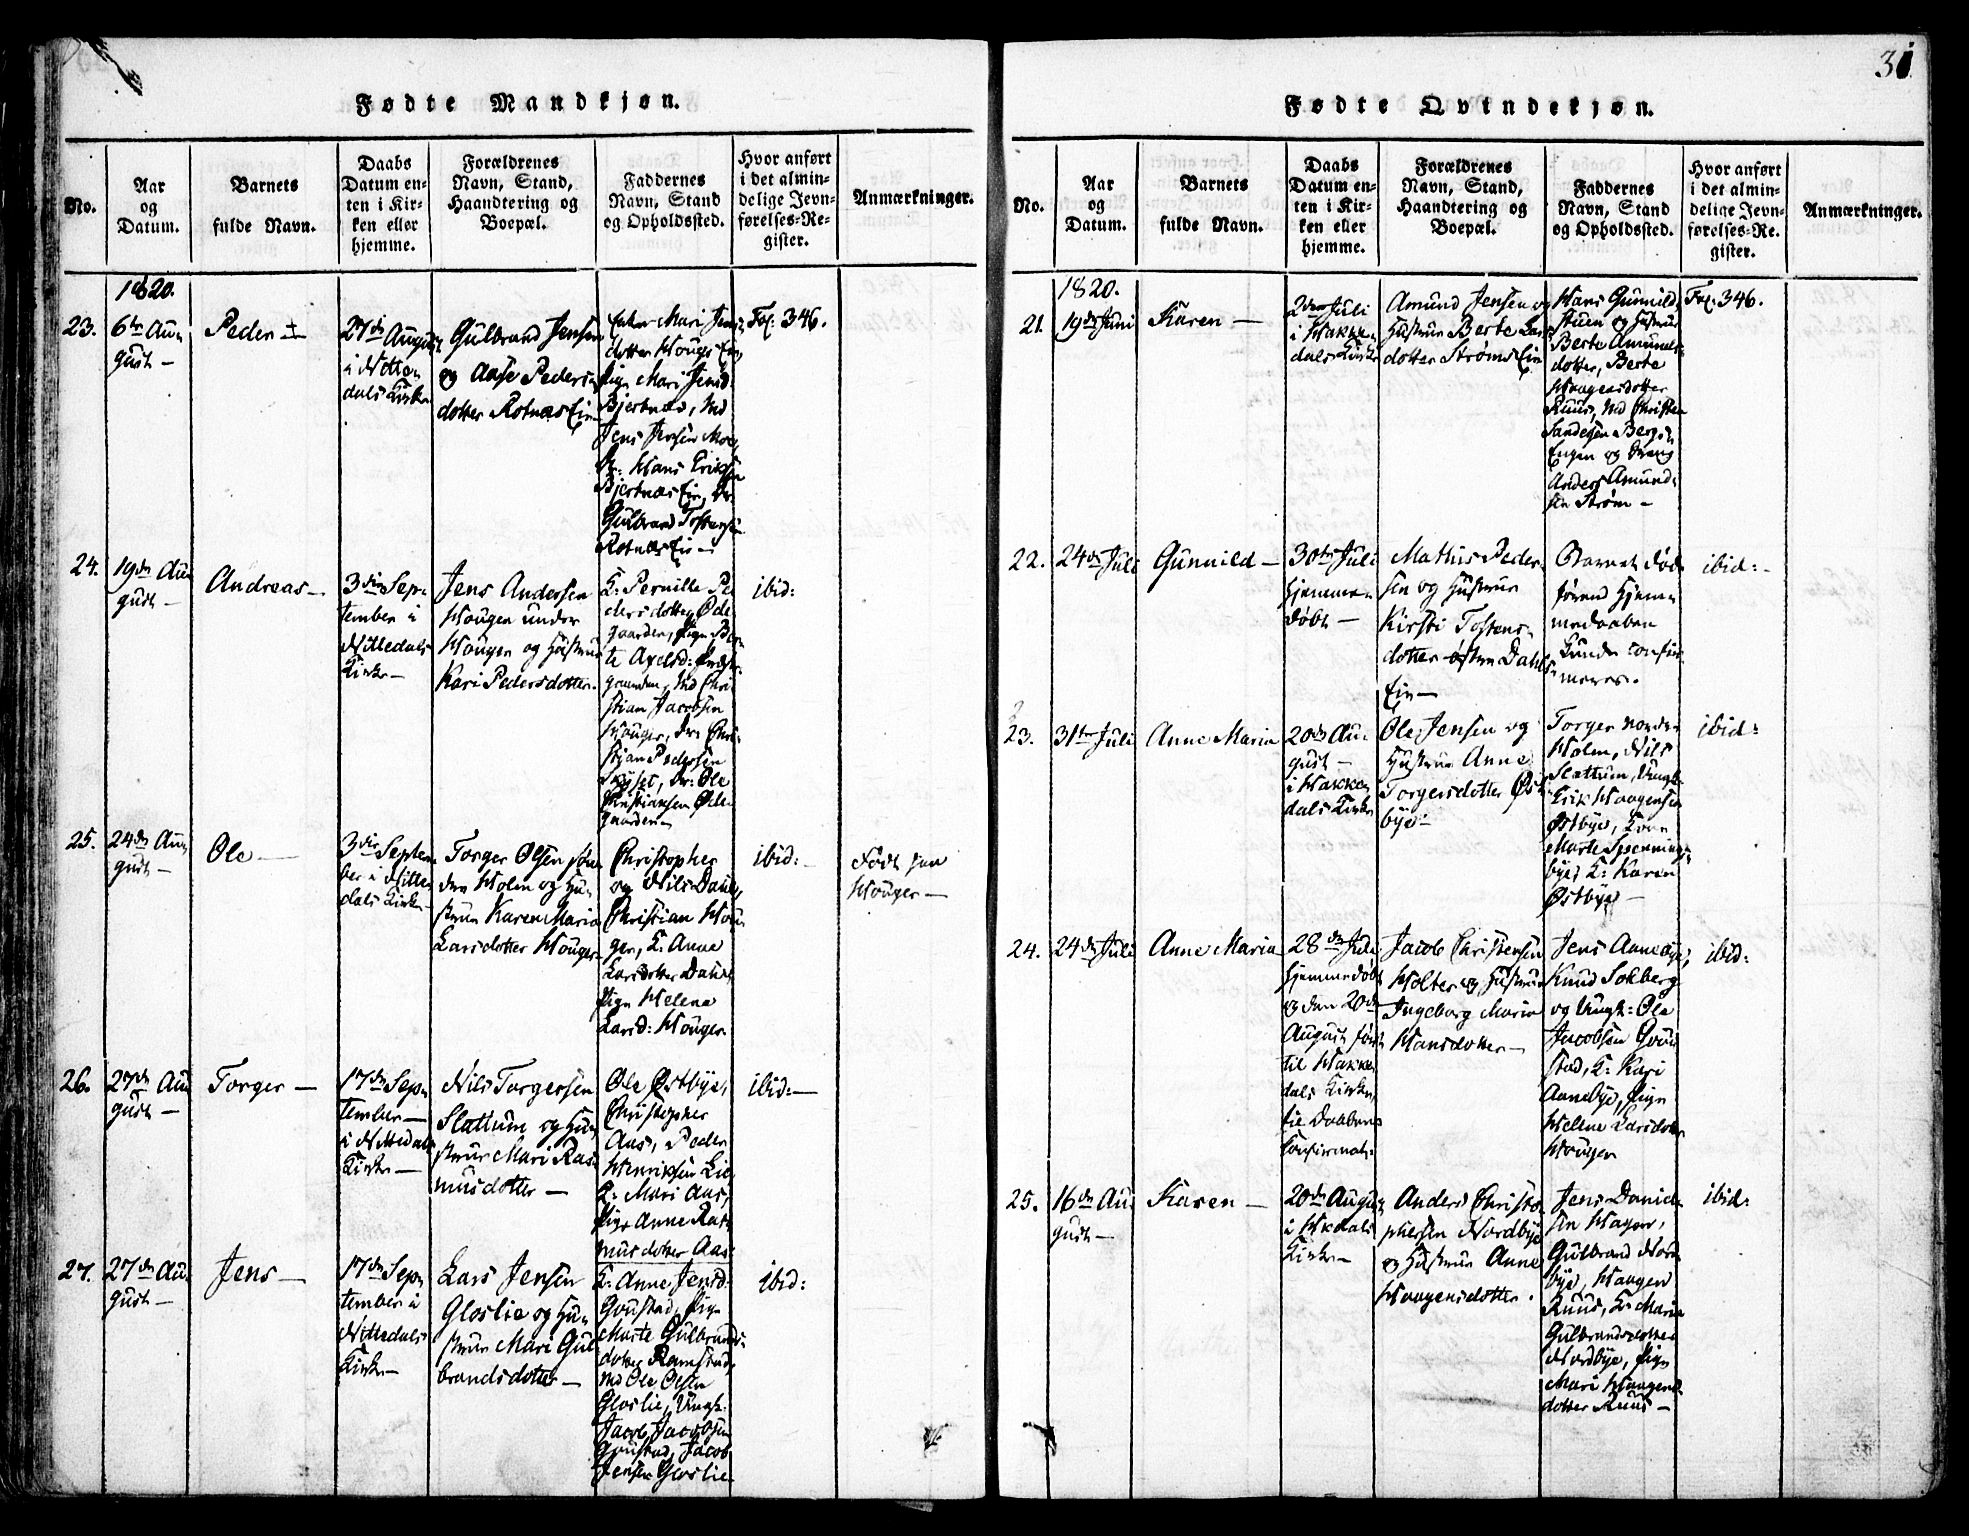 31
Fødte Mandkjøn.
No.
Aar
og
Datum.
Barnets
fulde Navn.
Daabs
Datum en-
ten i Kir-
ken eller
hjemme.
Forældrenes
Navn, Stand,
Haandtering og
Boepæl.
Faddernes
Navn, Stand
og Opholdssted.
Hvor anført
i det almin-
delige Jevn-
førelses-Re-
gister.
Anmærkninger.
1820.
23.
6te Au
gust —
Peder
27de August
i Nitte
dals Kirke
Gulbrand Jensen
og Aase Peders
dotter Rotnes Eie
Mari Jens
dotter Houges Eie,
Pige Mari Jensd.
Bjertnæs,
Jens Jensen Moe,
Hans Eriksen
Bjertnæs Eie,
Gulbrand Tostensen
Rotnæs Eie —
Fol: 346.
24.
19de Au
gust —
Andreas —
3die Sep
tember i
Nittedals
Kirke —
Jens Andersen
Hougen under
Hougen og Hustrue
Kari Pedersdotter.
K: Pernille Pe
dersdotter, Øde
gaarden, Pige Ber
te Axelsd:
Chri
stian Jacobsen
Houger, Chri
stian Pedersen
Ole
Christiansen Øde
gaarden —
ibid:
25.
24de Au
gust —
Ole —
3die Septem
ber i Nitte
dals Kirke —
Torger Olsen søn
dre Holm og Hu
strue Karen Maria
Larsdotter Houger
Christopher
og Nils Dahl,
Christian Hou
ger, K: Anne
Larsdotter Dahl,
Pige Helena
Larsd: Houger
ibid: —
Født paa
Houger —
26.
27de Au
gust —
Torger —
17de Sep
tember —
i Nittedals
Kirke —
Nils Torgersen
Slattum og Hu
strue Mari Ras
musdotter —
Ole Østbye,
Christopher
Aas, Peder
Henriksen Lie
K: Mari Aas,
Pige Anne Ras
musdotter Aas
ibid: —
27.
27de Au
gust —
Jens —
17de Sep
tember i
Nittedals
Kirke —
Lars Jensen
Gloslie og Hu
strue Mari Gul
brandsdotter —
K: Anne Jensd.
Qvustad, Pige
Marte Gulbrands
dotter Ramstad,
Ole Olsen
Gloslie, Ungk.
Jacob Jacobsen
Qvustad, Jacob
Jensen Gloslie
ibid:
Fødte Qvindekjøn.
No.
Aar
og
Datum.
Barnets
fulde Navn.
Daabs
Datum en-
ten i Kir-
ken eller
hjemme.
Forældrenes
Navn, Stand,
Haandtering og
Boepæl.
Faddernes
Navn, Stand
og Opholdssted.
Hvor anført
i det almin-
delige Jevn-
førelses-Re-
gister.
Anmærkninger.
1820.
21.
19de Juni
Karen —
2den Juli
i Hakke
dals Kirke
Amund Jensen og
Hustrue Berte Lars
dotter Strøms Eie
Hans Gunnild
stuen og Hustrue
Berte Amunds
dotter, Berte
Haagensdotter
Ruus, Christen
Sandersen Bergs
Engen og Dreng
Anders Amund
sen Strøm —
Fol: 346.
22.
24de Juli
Gunnild —
30te Juli
hjemme
døbt —
Mathis Peder
sen og Hustrue
Kirsti Tostens
dotter østre Dahls
Eie —
Barnet døde
førend Hjem
medaaben
kunde confir
meres.
ibid: —
23.
31te Juli
Anne Maria
20de Au
gust —
i Hakke
dals Kirke
Ole Jensen og
Hustrue Anne
Torgersdotter Øst
bye —
Torger nordre
Holm, Nils
Slattum, Ungk.
Erik Haagensen
Østbye, Kone
Marte Spenning
bye, K: Karen
Østbye —
ibid:
24.
24de Juli
Anne Maria
28de Juli
hjemmedøbt
og den 20de
August ført
til Hakke
dals Kirke,
til Daabens
Confirmat:
Jacob Christensen
Holter og Hustrue
Ingeborg Maria
Hansdotter —
Jens Annebye,
Knud Solberg
og Ungk: Ole
Jacobsen Qvu
stad, K: Kari
Annebye, Pige
Helene Larsdotter
Houger
ibid:
25.
16de Au
gust —
Karen —
20de August
i Hkdals
Kirke —
Anders Christo
phersen Nordbye
og Hustrue Anne
Haagensdotter.
Jens Daniel
sen Hagen,
Gulbrand Nord
bye, Haagen
Ruus, K: Maria
Gulbrandsdotter
Nordbye, Pige
Mari Haagens
dotter Ruus —
ibid: